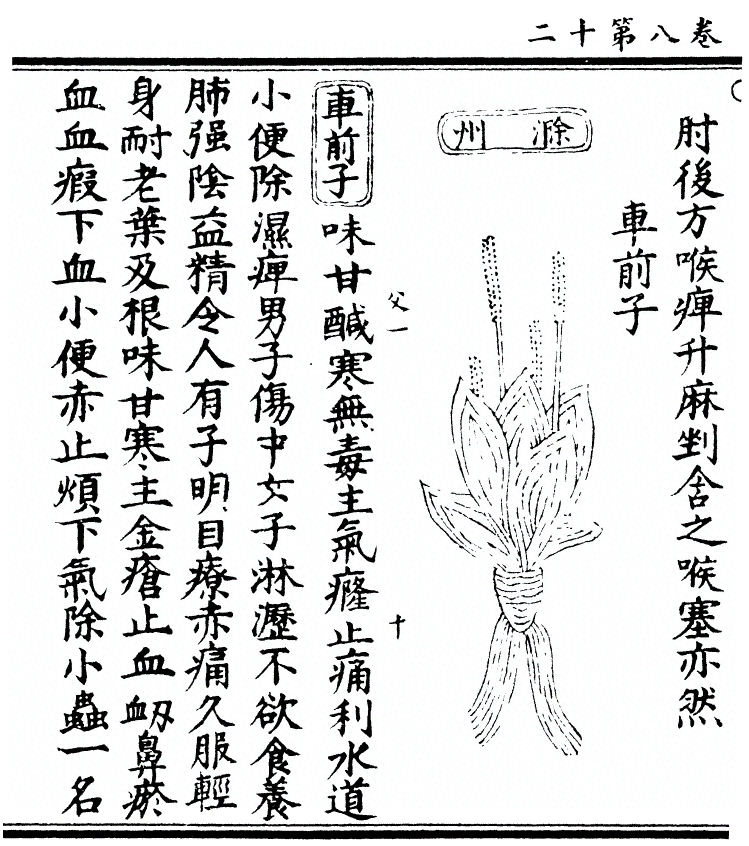 二十第八卷
肘後方喉痺升麻剉含之喉塞亦然
車前子
滁州
父一
十
車前子味甘醎寒無毒主氣癃止痛利水道
小便除濕痺男子傷中女子淋瀝不欲食養
肺强陰益精令人有子明目療赤痛久服輕
身耐老葉及根味甘寒主金瘡止血衂鼻瘀
血血瘕下血小便赤止煩下氣除小蟲一名